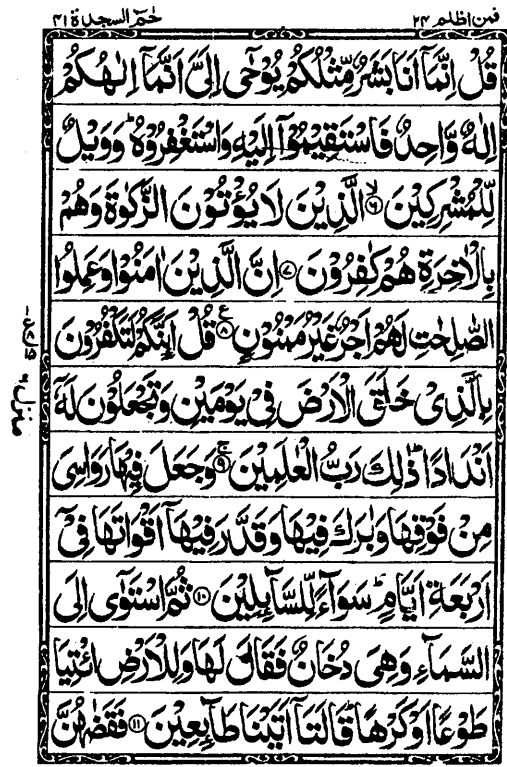 فمن اظلم ٢٤
حٰمٓ السجدة ٤١
قُلْ اِنَّمَاۤ اَنَا بَشَرٌ مِّثْلُكُمْ يُوْحٰۤى اِلَیَّ اَنَّمَاۤ اِلٰهُكُمْ
اِلٰهٌ وَّاحِدٌ فَاسْتَقِيْمُوْۤا اِلَيْهِ وَاسْتَغْفِرُوْهُ ؕ وَوَيْلٌ
لِّلْمُشْرِكِيْنَ ۙ﴿٦﴾ الَّذِيْنَ لَا يُؤْتُوْنَ الزَّكٰوةَ وَهُمْ
بِالْاٰخِرَةِ هُمْ كٰفِرُوْنَ ﴿٧﴾ اِنَّ الَّذِيْنَ اٰمَنُوْا وَعَمِلُوا
الصّٰلِحٰتِ لَهُمْ اَجْرٌ غَيْرُ مَمْنُوْنٍ ﴿٨﴾ ع قُلْ اَئِنَّكُمْ لَتَكْفُرُوْنَ
بِالَّذِیْ خَلَقَ الْاَرْضَ فِیْ يَوْمَيْنِ وَتَجْعَلُوْنَ لَهٗۤ
اَنْدَادًا ؕ ذٰلِكَ رَبُّ الْعٰلَمِيْنَ ۚ﴿٩﴾ وَجَعَلَ فِيْهَا رَوَاسِیَ
مِنْ فَوْقِهَا وَبٰرَكَ فِيْهَا وَقَدَّرَ فِيْهَاۤ اَقْوَاتَهَا فِیْۤ
اَرْبَعَةِ اَيَّامٍ ؕ سَوَآءً لِّلسَّآئِلِيْنَ ﴿١٠﴾ ثُمَّ اسْتَوٰۤى اِلَى
السَّمَآءِ وَهِیَ دُخَانٌ فَقَالَ لَهَا وَلِلْاَرْضِ ائْتِيَا
طَوْعًا اَوْ كَرْهًا ؕ قَالَتَاۤ اَتَيْنَا طَآئِعِيْنَ ﴿١١﴾ فَقَضٰهُنَّ
منزل ٦